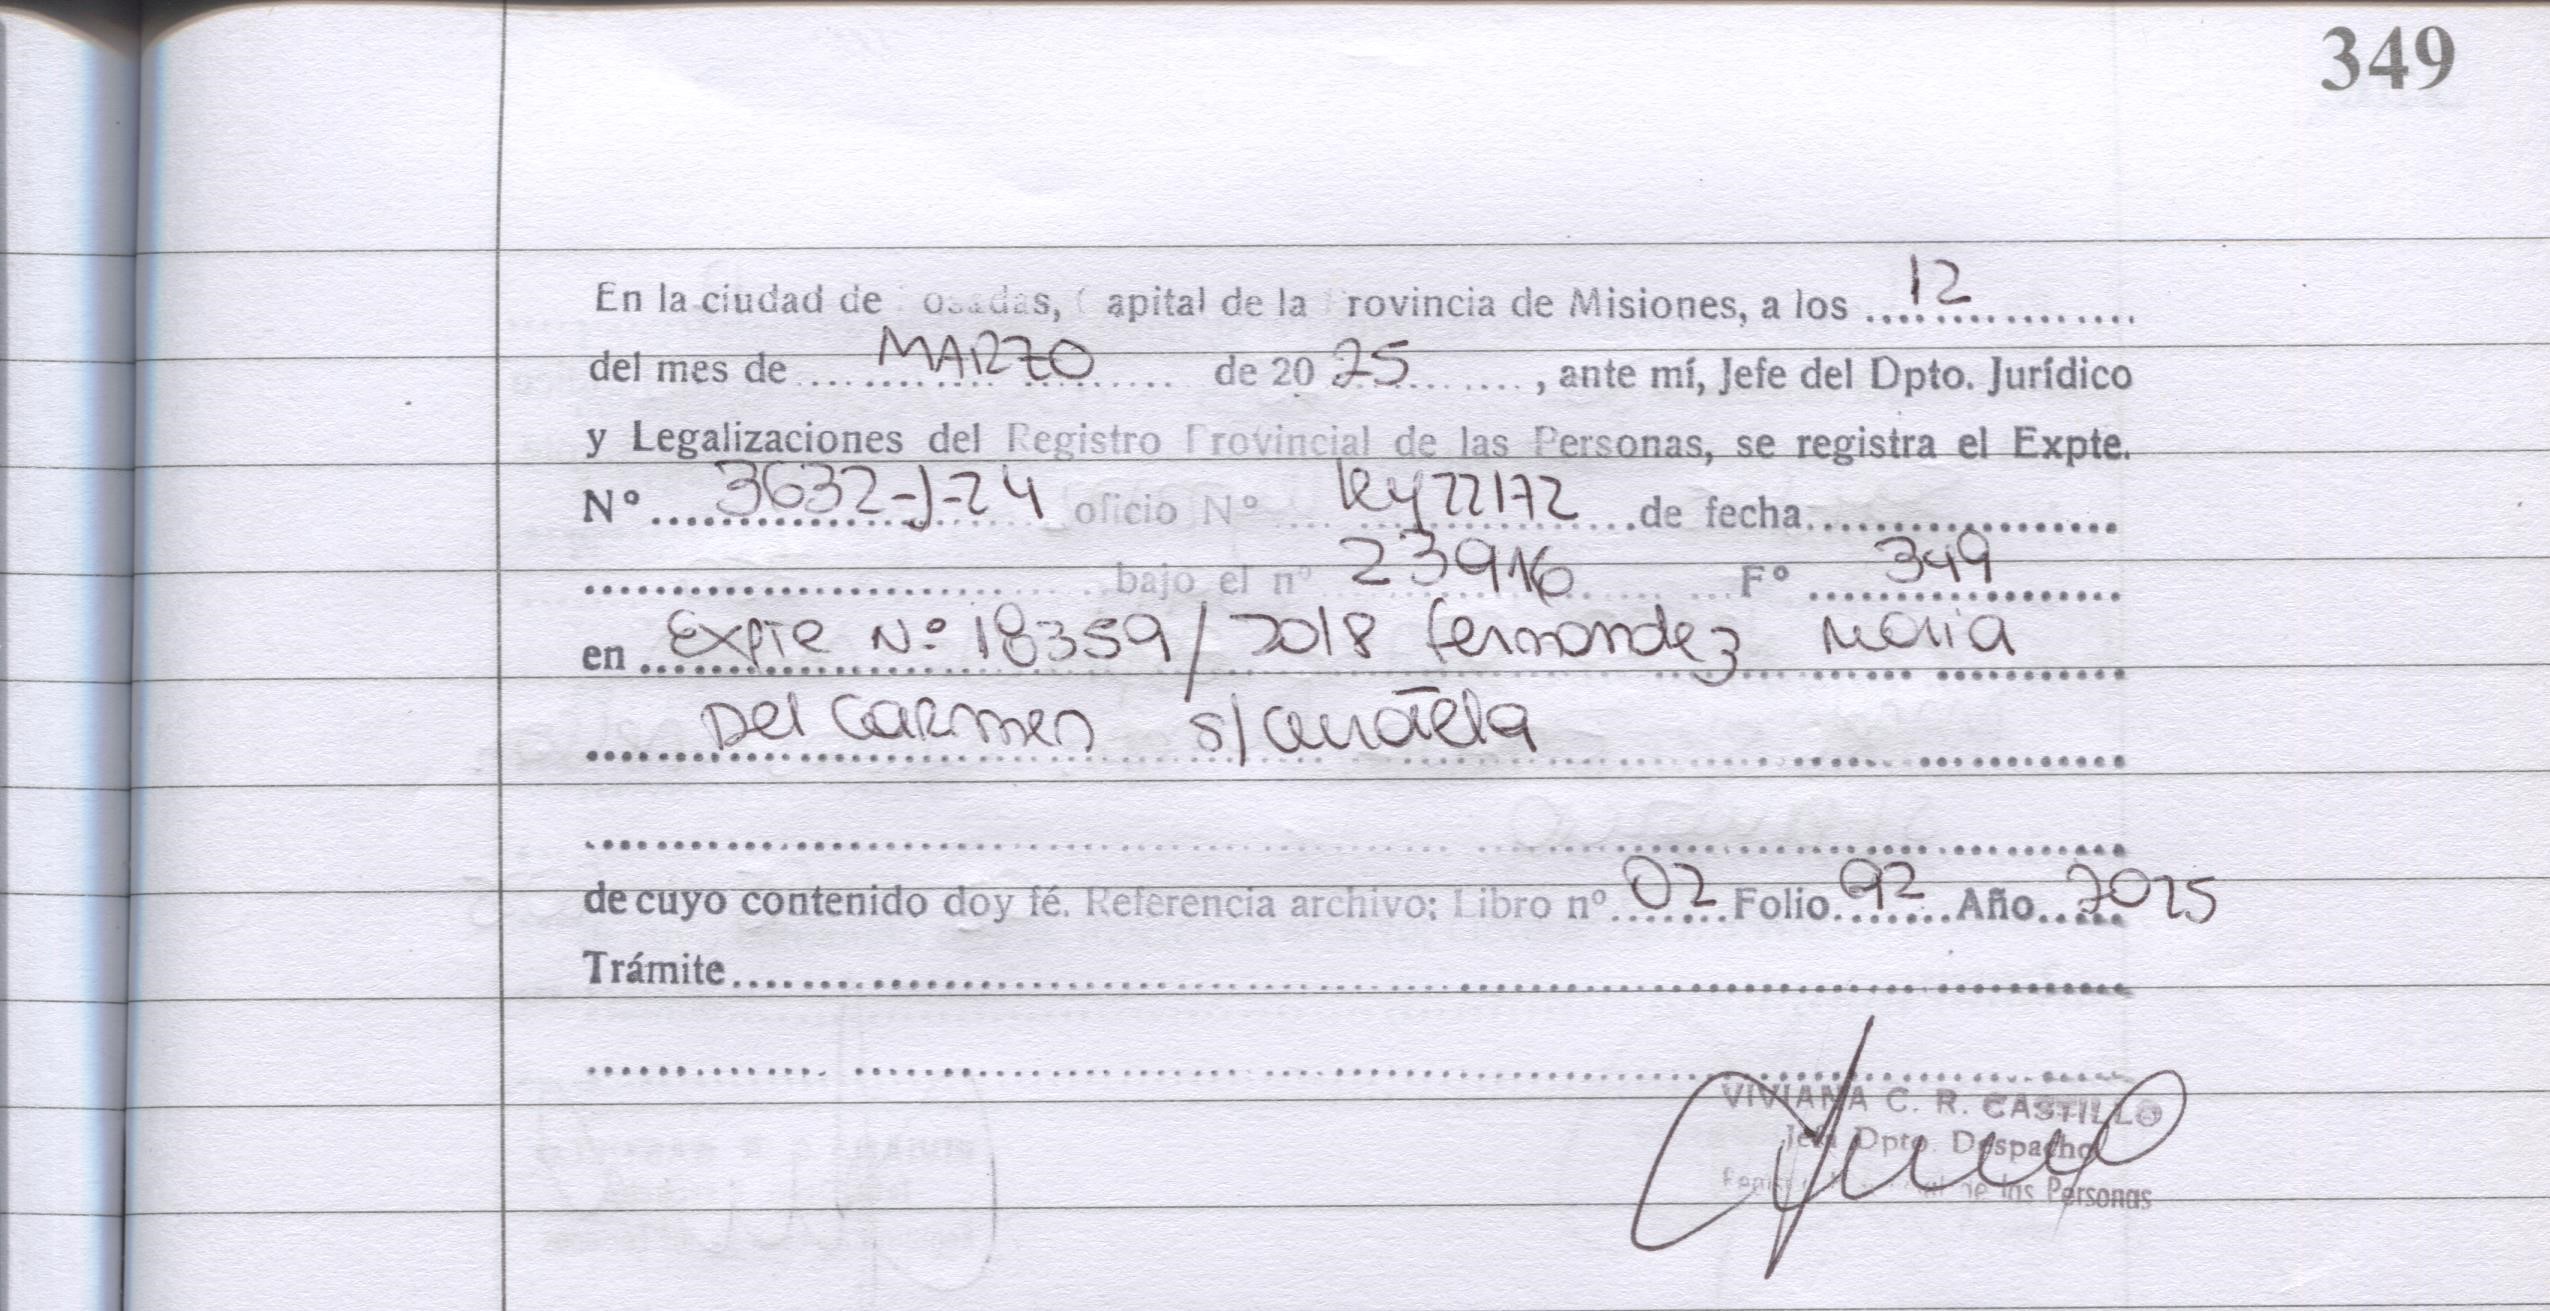 349
En la ciudad de Posadas, Capital de la Provincia de Misiones, a los 12
del mes de MARZO de 20 25, ante mí, Jefe del Dpto. Jurídico
y Legalizaciones del Registro Provincial de las Personas, se registra el Expte.
Nº 3632-J-24 oficio Nº ley 22172 de fecha
bajo el nº 23916 Fº 349
en Expte Nº 18359/2018 fernandez Maria
Del Carmen s/
de cuyo contenido doy fé. Referencia archivo: Libro nº 02 Folio 92 Año 2025
Trámite
VIVIANA C. R. CASTILLO
Jefa Dpto. Despacho
de las Personas